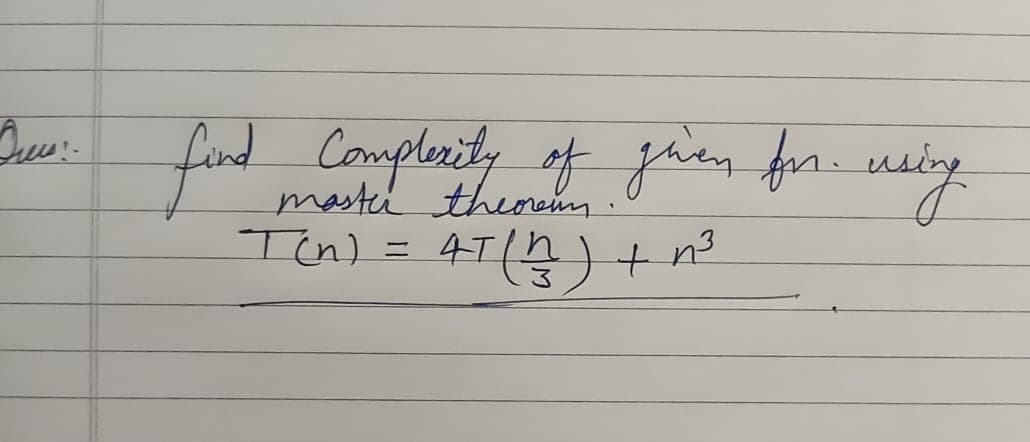 Ques:- find Complexity of given fn. using
master theorem.
T(n) = 4T(n/3) + n³